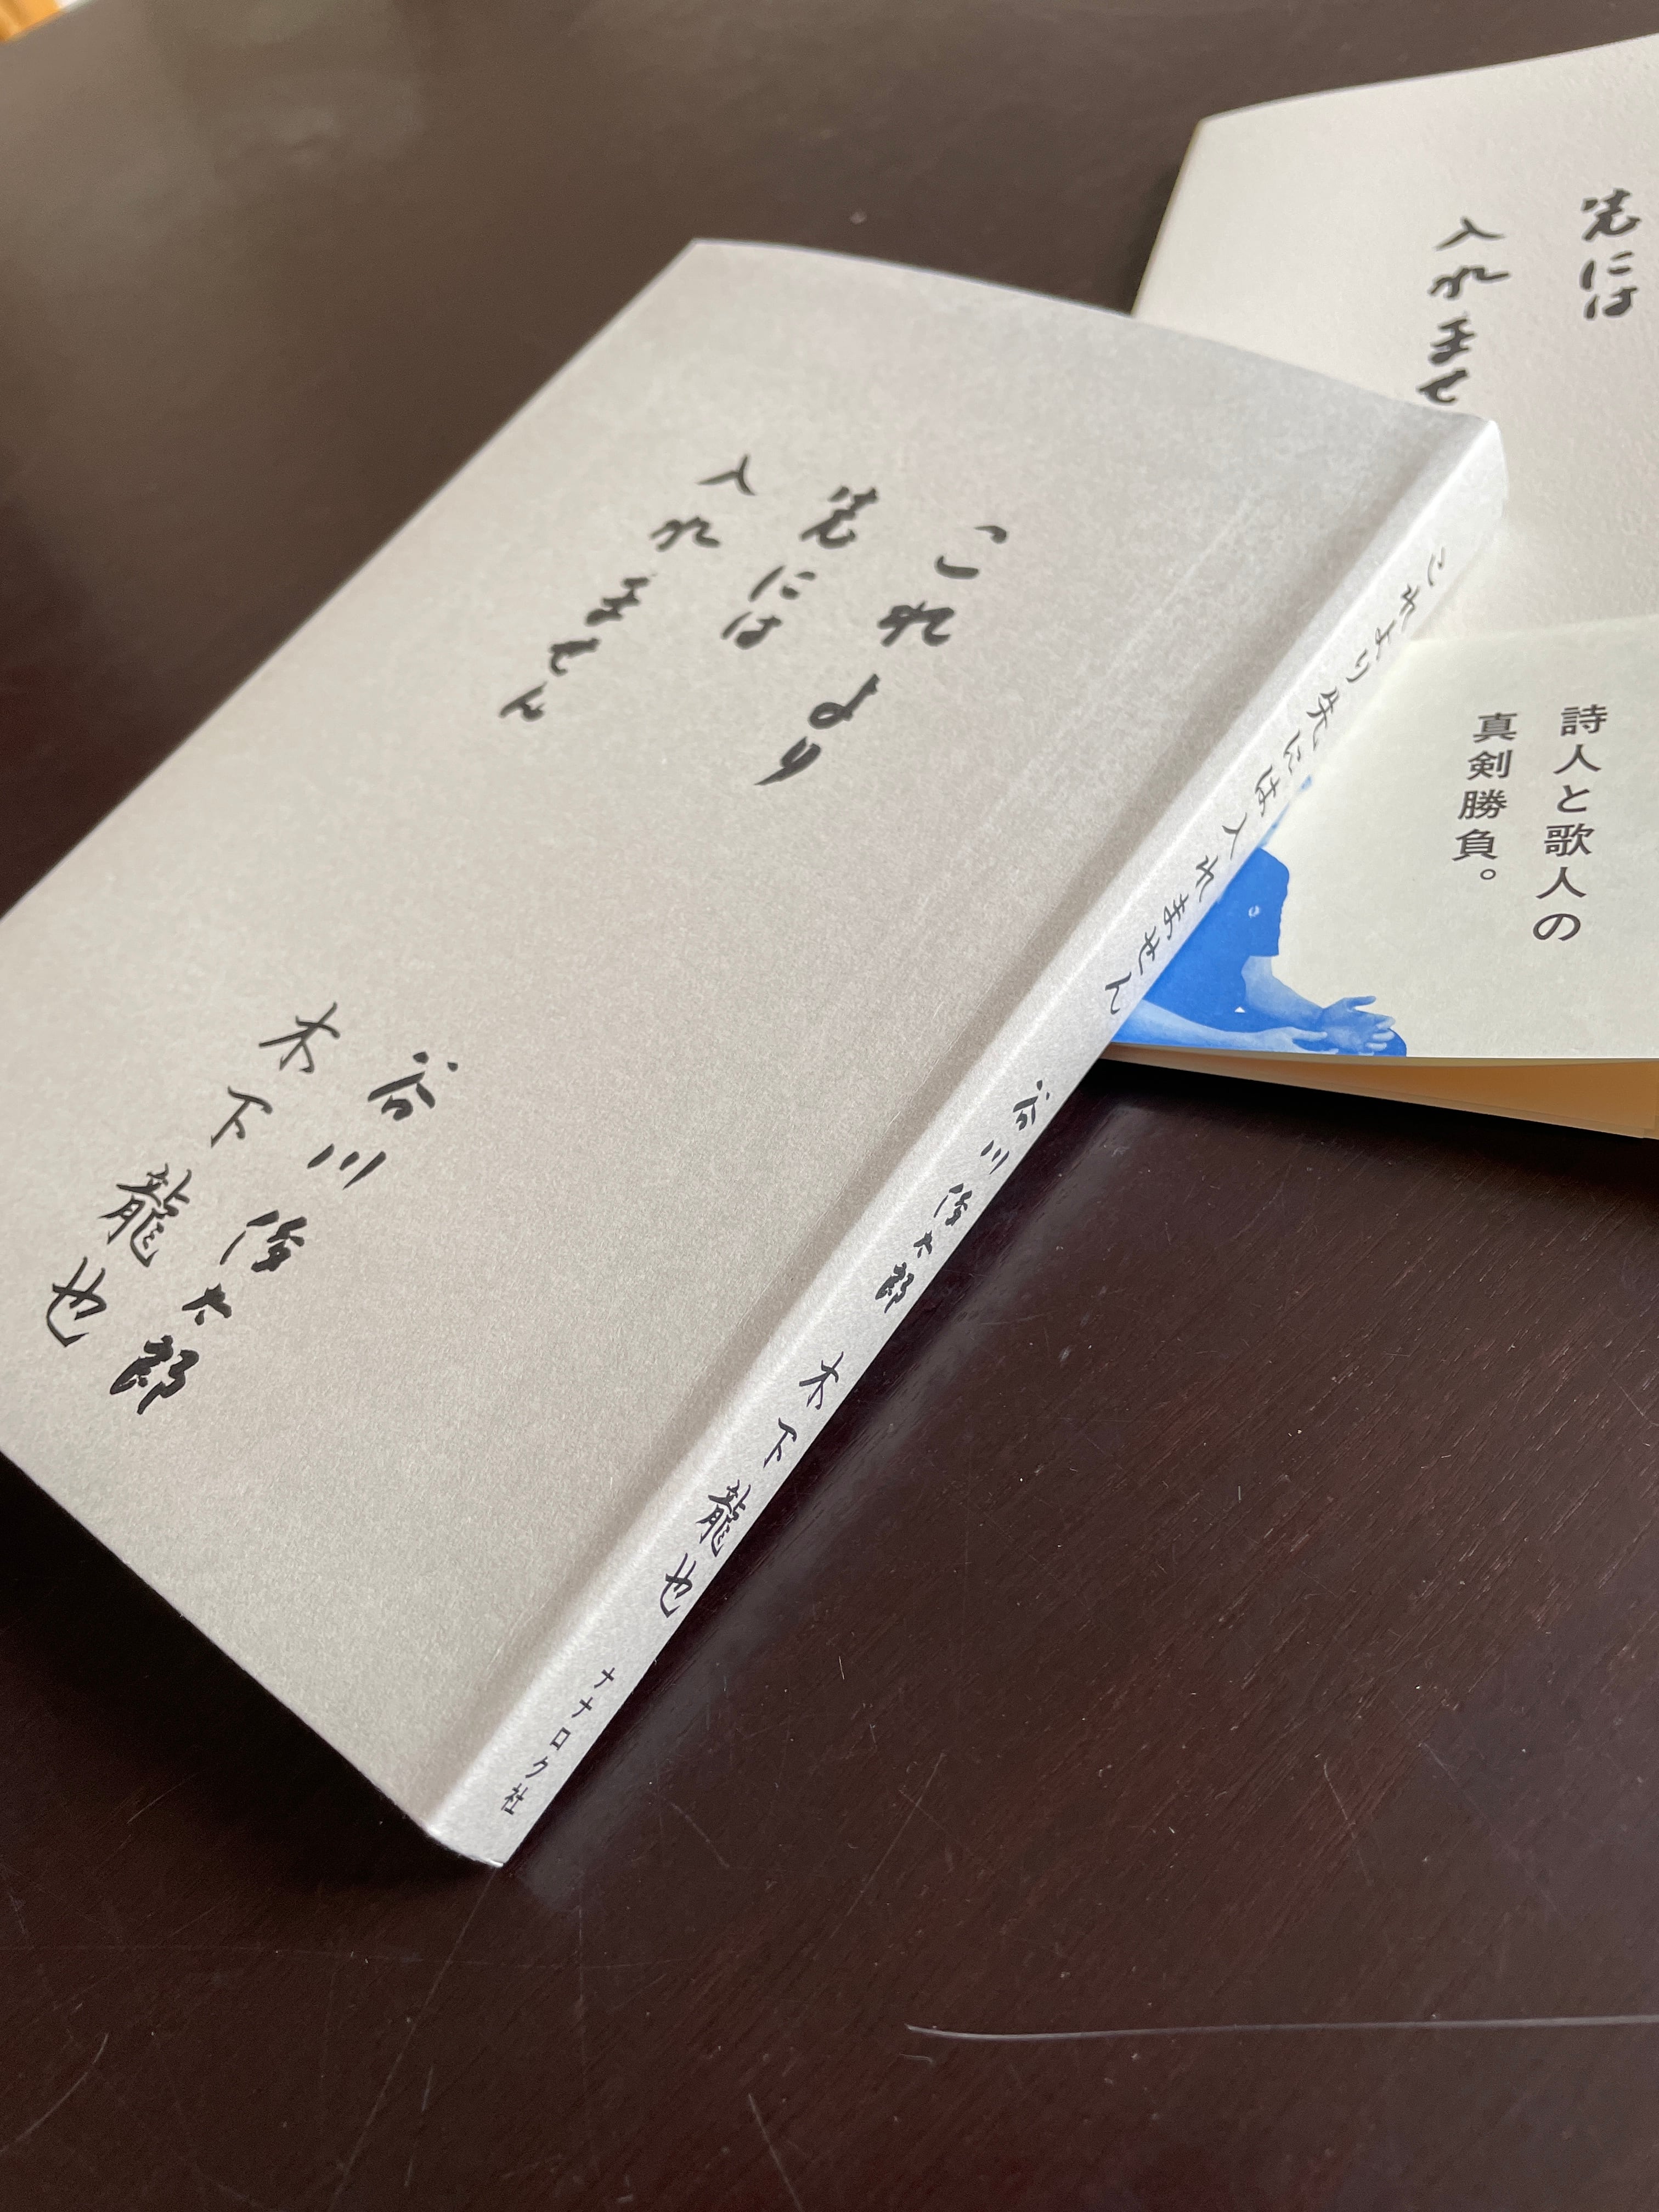 これより
先には
入れません
谷川俊太郎
木下龍也
これより先には入れません 谷川俊太郎 木下龍也 ナナロク社
先には
入れませ
詩人と歌人の
真剣勝負。